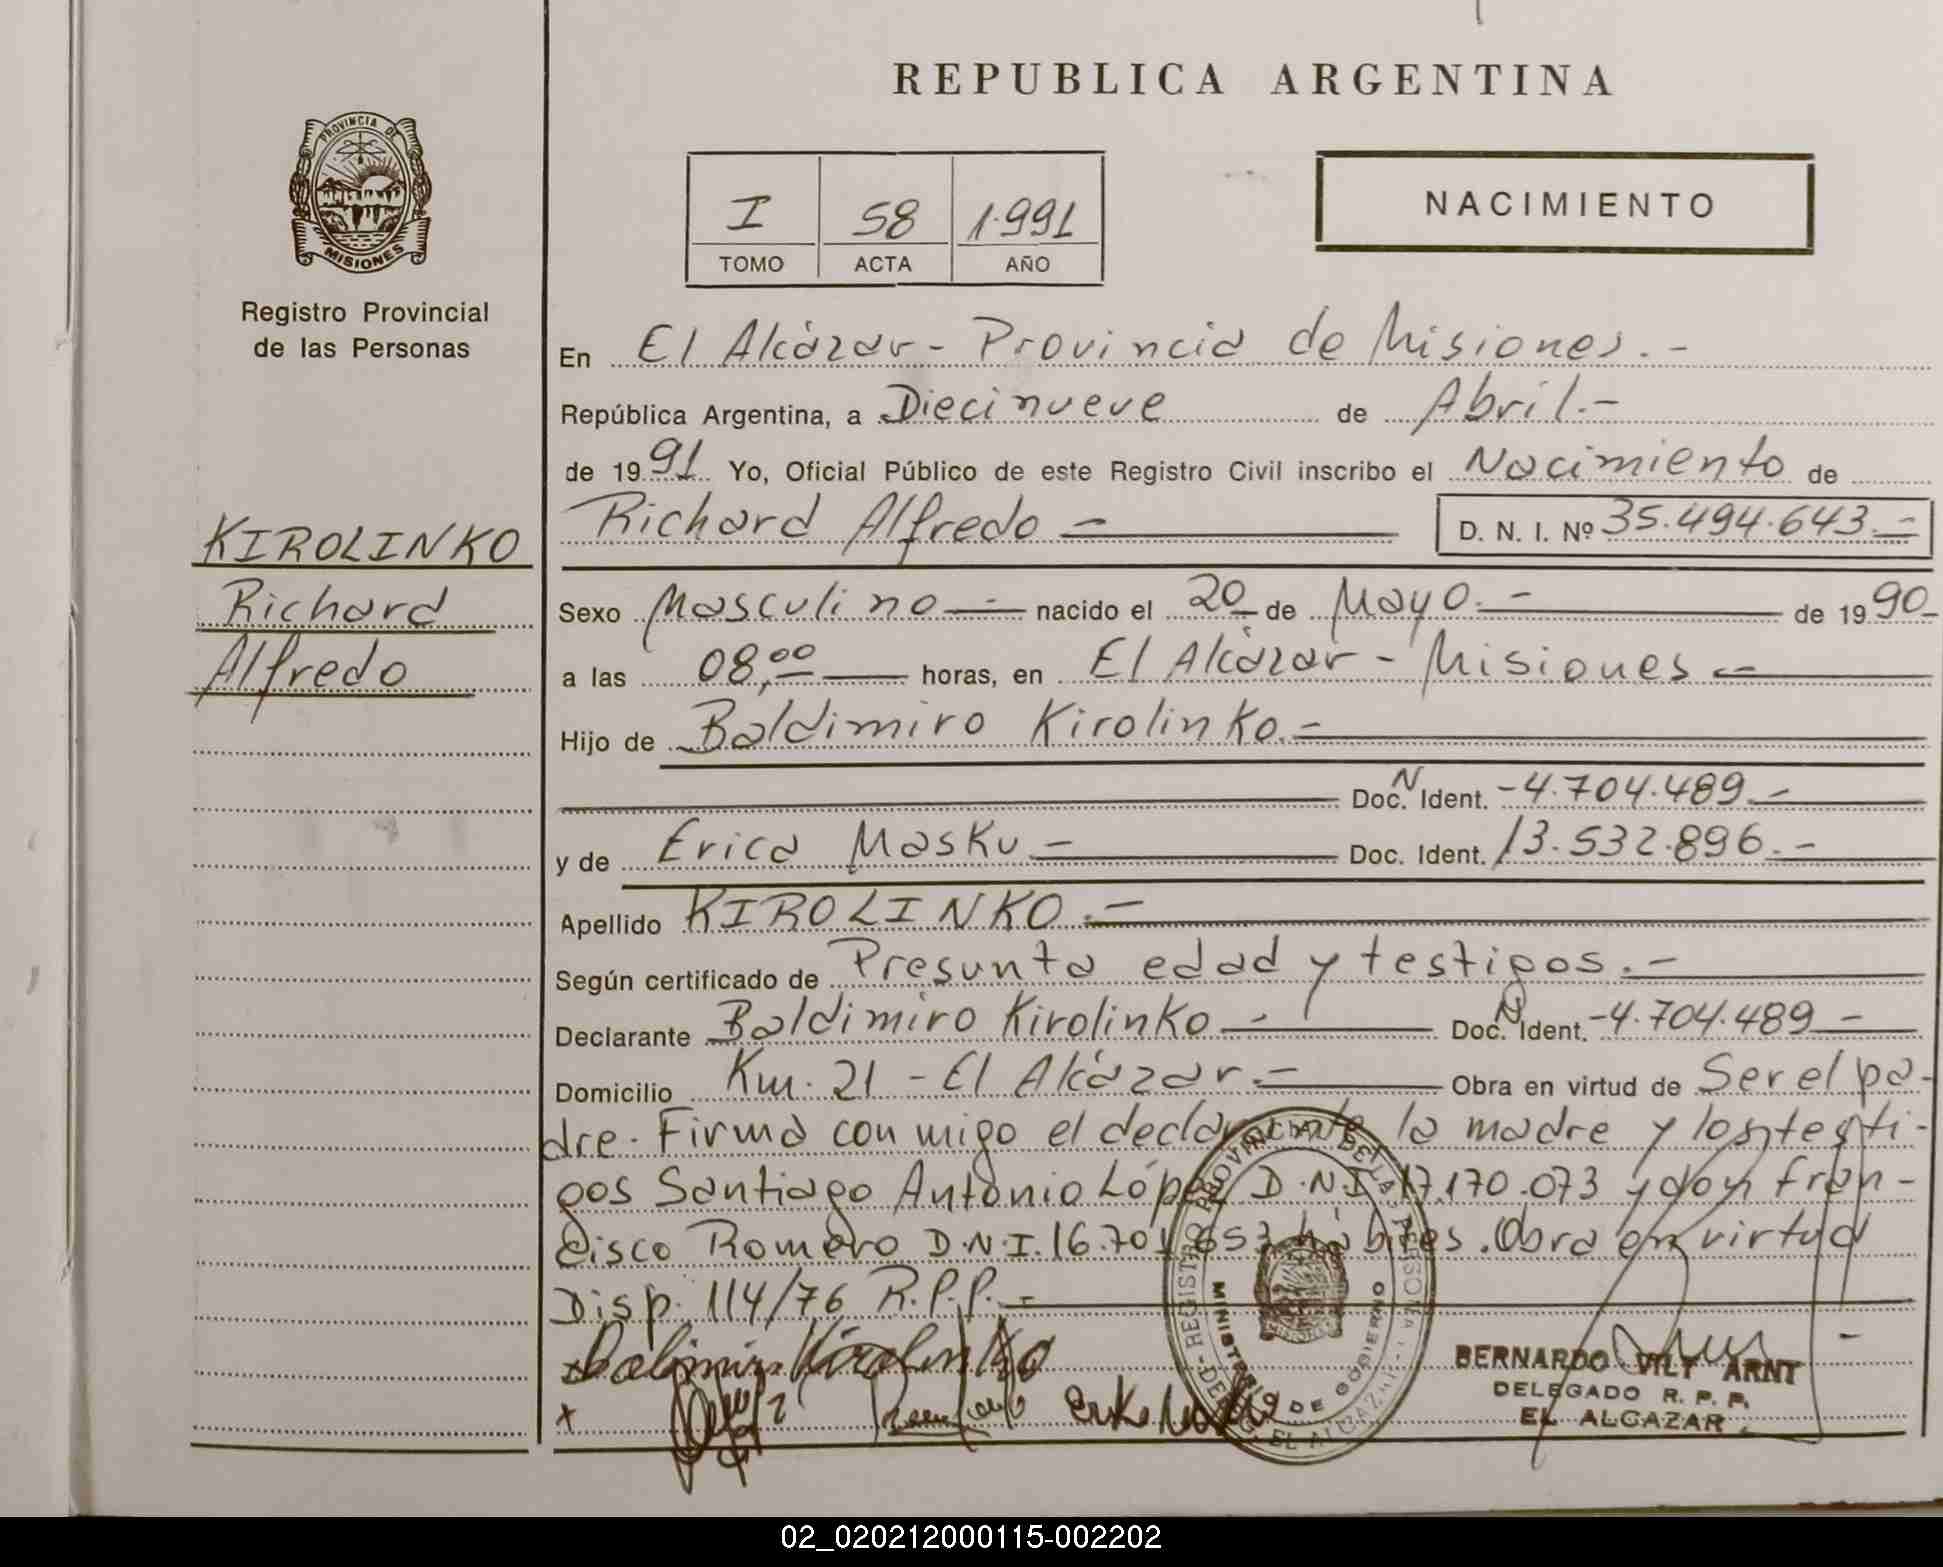 REPUBLICA ARGENTINA
PROVINCIA DE
MISIONES
Registro Provincial
de las Personas
I 58 1.991
TOMO ACTA AÑO
NACIMIENTO
En El Alcázar - Provincia de Misiones.-
República Argentina, a Diecinueve de Abril.-
de 1991 Yo, Oficial Público de este Registro Civil inscribo el Nacimiento de
KIROLINKO
Richard
Alfredo
Richard Alfredo - D. N. I. Nº 35.494.643.-
Sexo Masculino - nacido el 20 de Mayo.- de 1990-
a las 08,00 horas, en El Alcázar - Misiones -
Hijo de Baldimiro Kirolinko.-
Doc. N Ident. -4.704.489.-
y de Erica Masku - Doc. Ident. 13.532.896.-
Apellido KIROLINKO.-
Según certificado de Presunta edad y testigos.-
Declarante Baldimiro Kirolinko - Doc. N Ident. -4.704.489-
Domicilio Km. 21 - El Alcázar.- Obra en virtud de Ser el pa-
dre. Firma con migo el declarante la madre y los testi-
gos Santiago Antonio López D.N.I 17.170.073 y don Fran-
cisco Romero D.N.I. 16.701.653 hábiles. Obra en virtud
Disp. 114/76 R.P.P.-
Kirolinko
REGISTRO PROVINCIAL DE LAS PERSONAS
MINISTERIO DE GOBIERNO
EL ALCAZAR
BERNARDO VILY ARNT
DELEGADO R. P. P.
EL ALCAZAR
02_020212000115-002202